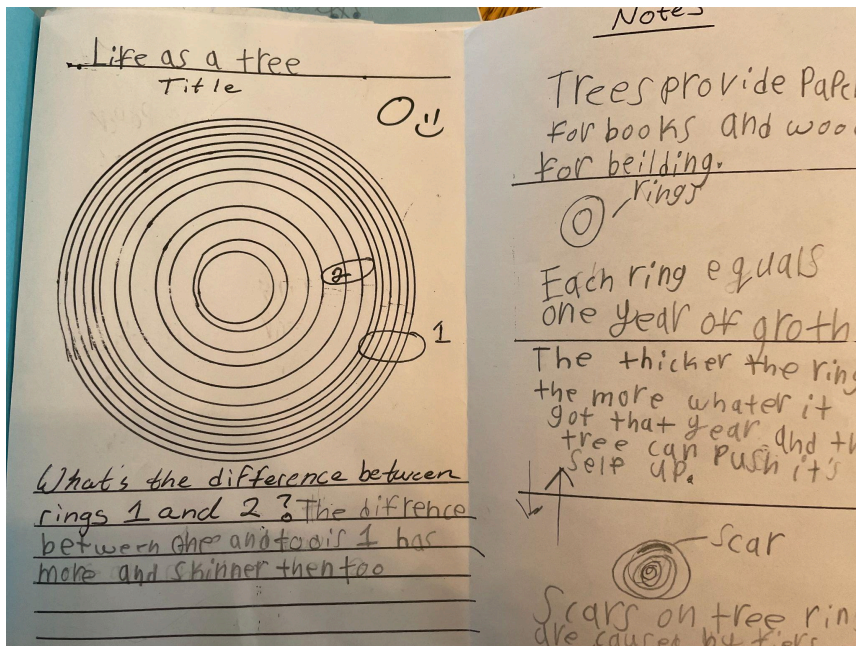 Life as a tree
Title
2
1
What's the difference between
rings 1 and 2? The difrence
between one and too is 1 has
more and skinner then too
Notes
Trees provide Pape
for books and woo
for beilding.
rings
Each ring equals
one year of groth
The thicker the ring
the more whater it
got that year and th
tree can push it's
self up.
scar
Scars on tree rin
are caused by